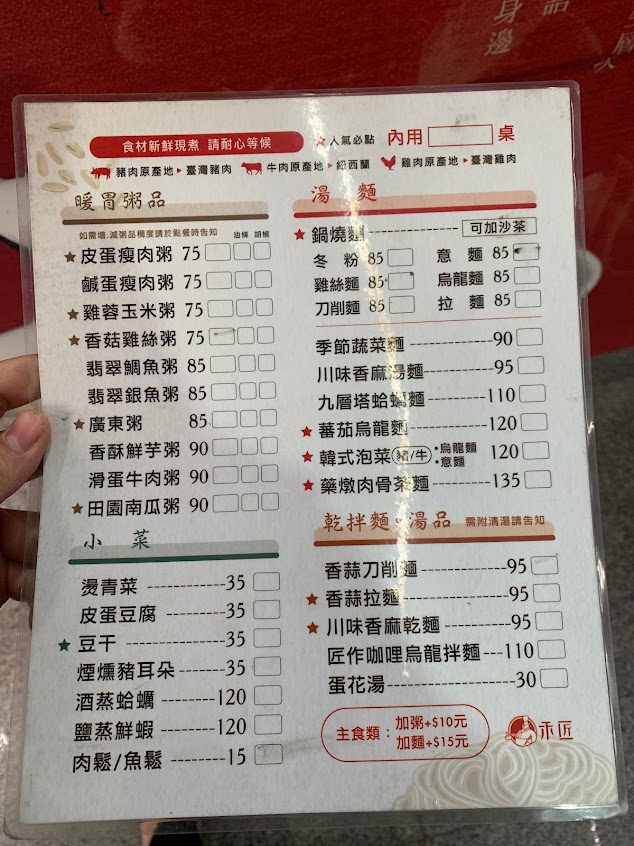 身邊
品
層次
食材新鮮現煮 請耐心等候
★人氣必點 內用 桌
豬肉原產地▶臺灣豬肉 牛肉原產地▶紐西蘭 雞肉原產地▶臺灣雞肉
暖胃粥品
如需增.減粥品稠度請於點餐時告知 油條 胡椒
★皮蛋瘦肉粥 75
鹹蛋瘦肉粥 75
★雞蓉玉米粥 75
★香菇雞絲粥 75
翡翠鯛魚粥 85
翡翠銀魚粥 85
★廣東粥 85
香酥鮮芋粥 90
滑蛋牛肉粥 90
★田園南瓜粥 90
小菜
燙青菜 ---------35
皮蛋豆腐 -------35
★豆干 ------------35
煙燻豬耳朵 -----35
酒蒸蛤蠣 ------120
鹽蒸鮮蝦 ------120
肉鬆/魚鬆 ------15
湯麵
★鍋燒麵---------------可加沙茶
冬粉 85 意麵 85
雞絲麵 85 烏龍麵 85
刀削麵 85 拉麵 85
季節蔬菜麵 -----------90
川味香麻湯麵----------95
九層塔蛤蠣麵--------110
★蕃茄烏龍麵----------120
★韓式泡菜(豬/牛)•烏龍麵 •意麵 120
★藥燉肉骨茶麵-------135
乾拌麵•湯品 需附清湯請告知
香蒜刀削麵-----------95
★香蒜拉麵-------------95
★川味香麻乾麵--------95
匠作咖哩烏龍拌麵---110
蛋花湯----------------30
主食類：加粥+$10元
加麵+$15元
禾匠